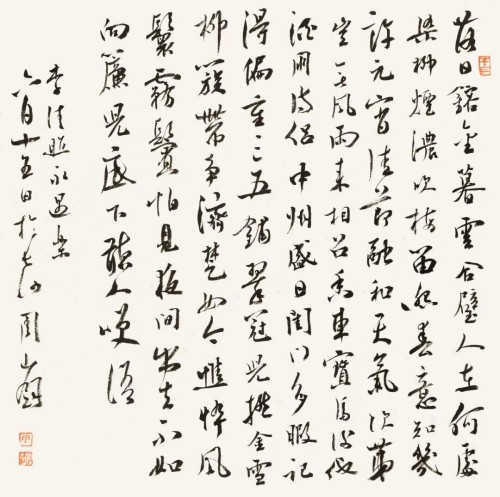 落日鎔金暮雲合璧人在何處
染柳煙濃吹梅笛怨春意知幾
許元宵佳節融和天氣次第
豈無風雨來相召香車寶馬謝他
酒朋詩侶中州盛日閨門多暇記
得偏重三五鋪翠冠兒撚金雪
柳簇帶爭濟楚如今憔悴風
鬟霧鬢怕見夜間出去不如
向簾兒底下聽人咲語
李清照永遇樂
六月十五日於長沙周